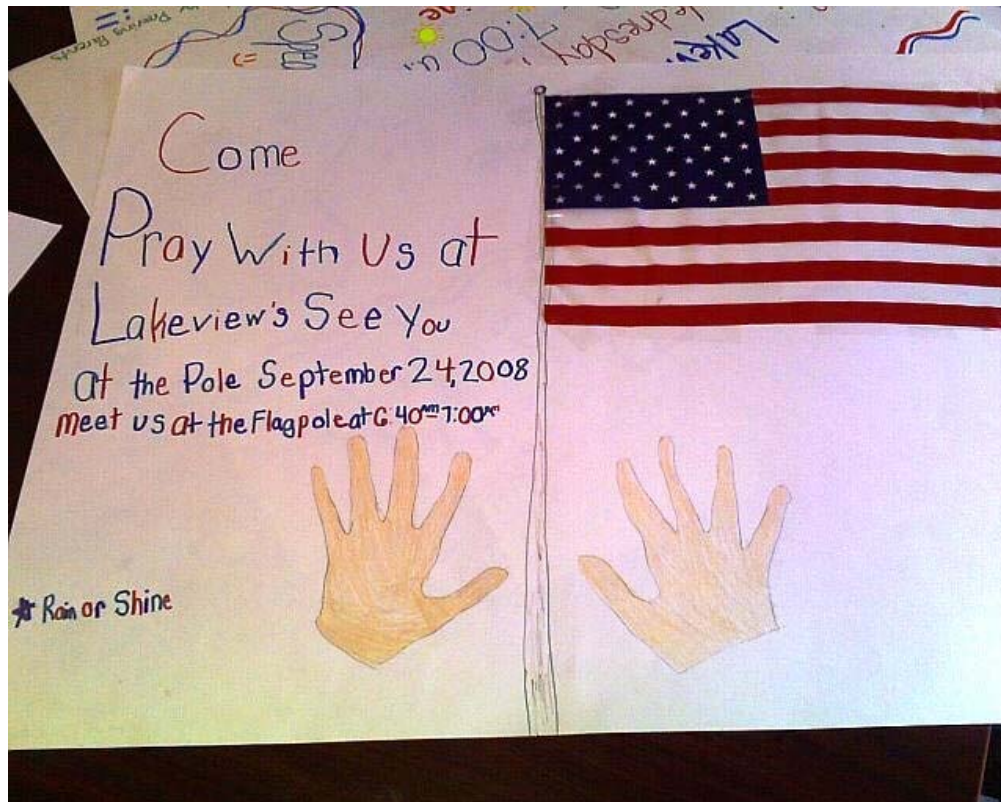 Come
Pray With Us at
Lakeview's See You
at the Pole September 24, 2008
meet us at the Flagpole at 6:40am-7:00am
* Rain or Shine
7:00